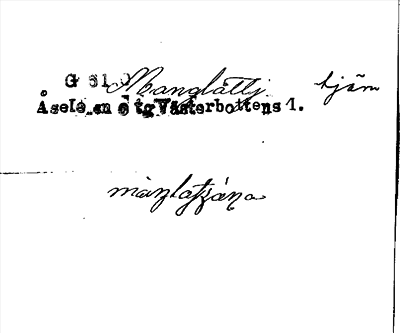 G 510 Manglattj. tjärn
Åsele sn o tg Västerbottens l.
mànlatjána